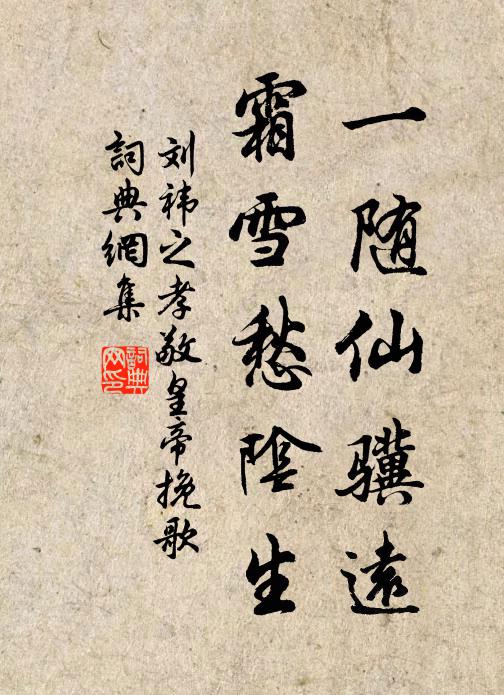 一随仙骥远
霜雪愁阴生
刘祎之孝敬皇帝挽歌
词典網集
詞典網印